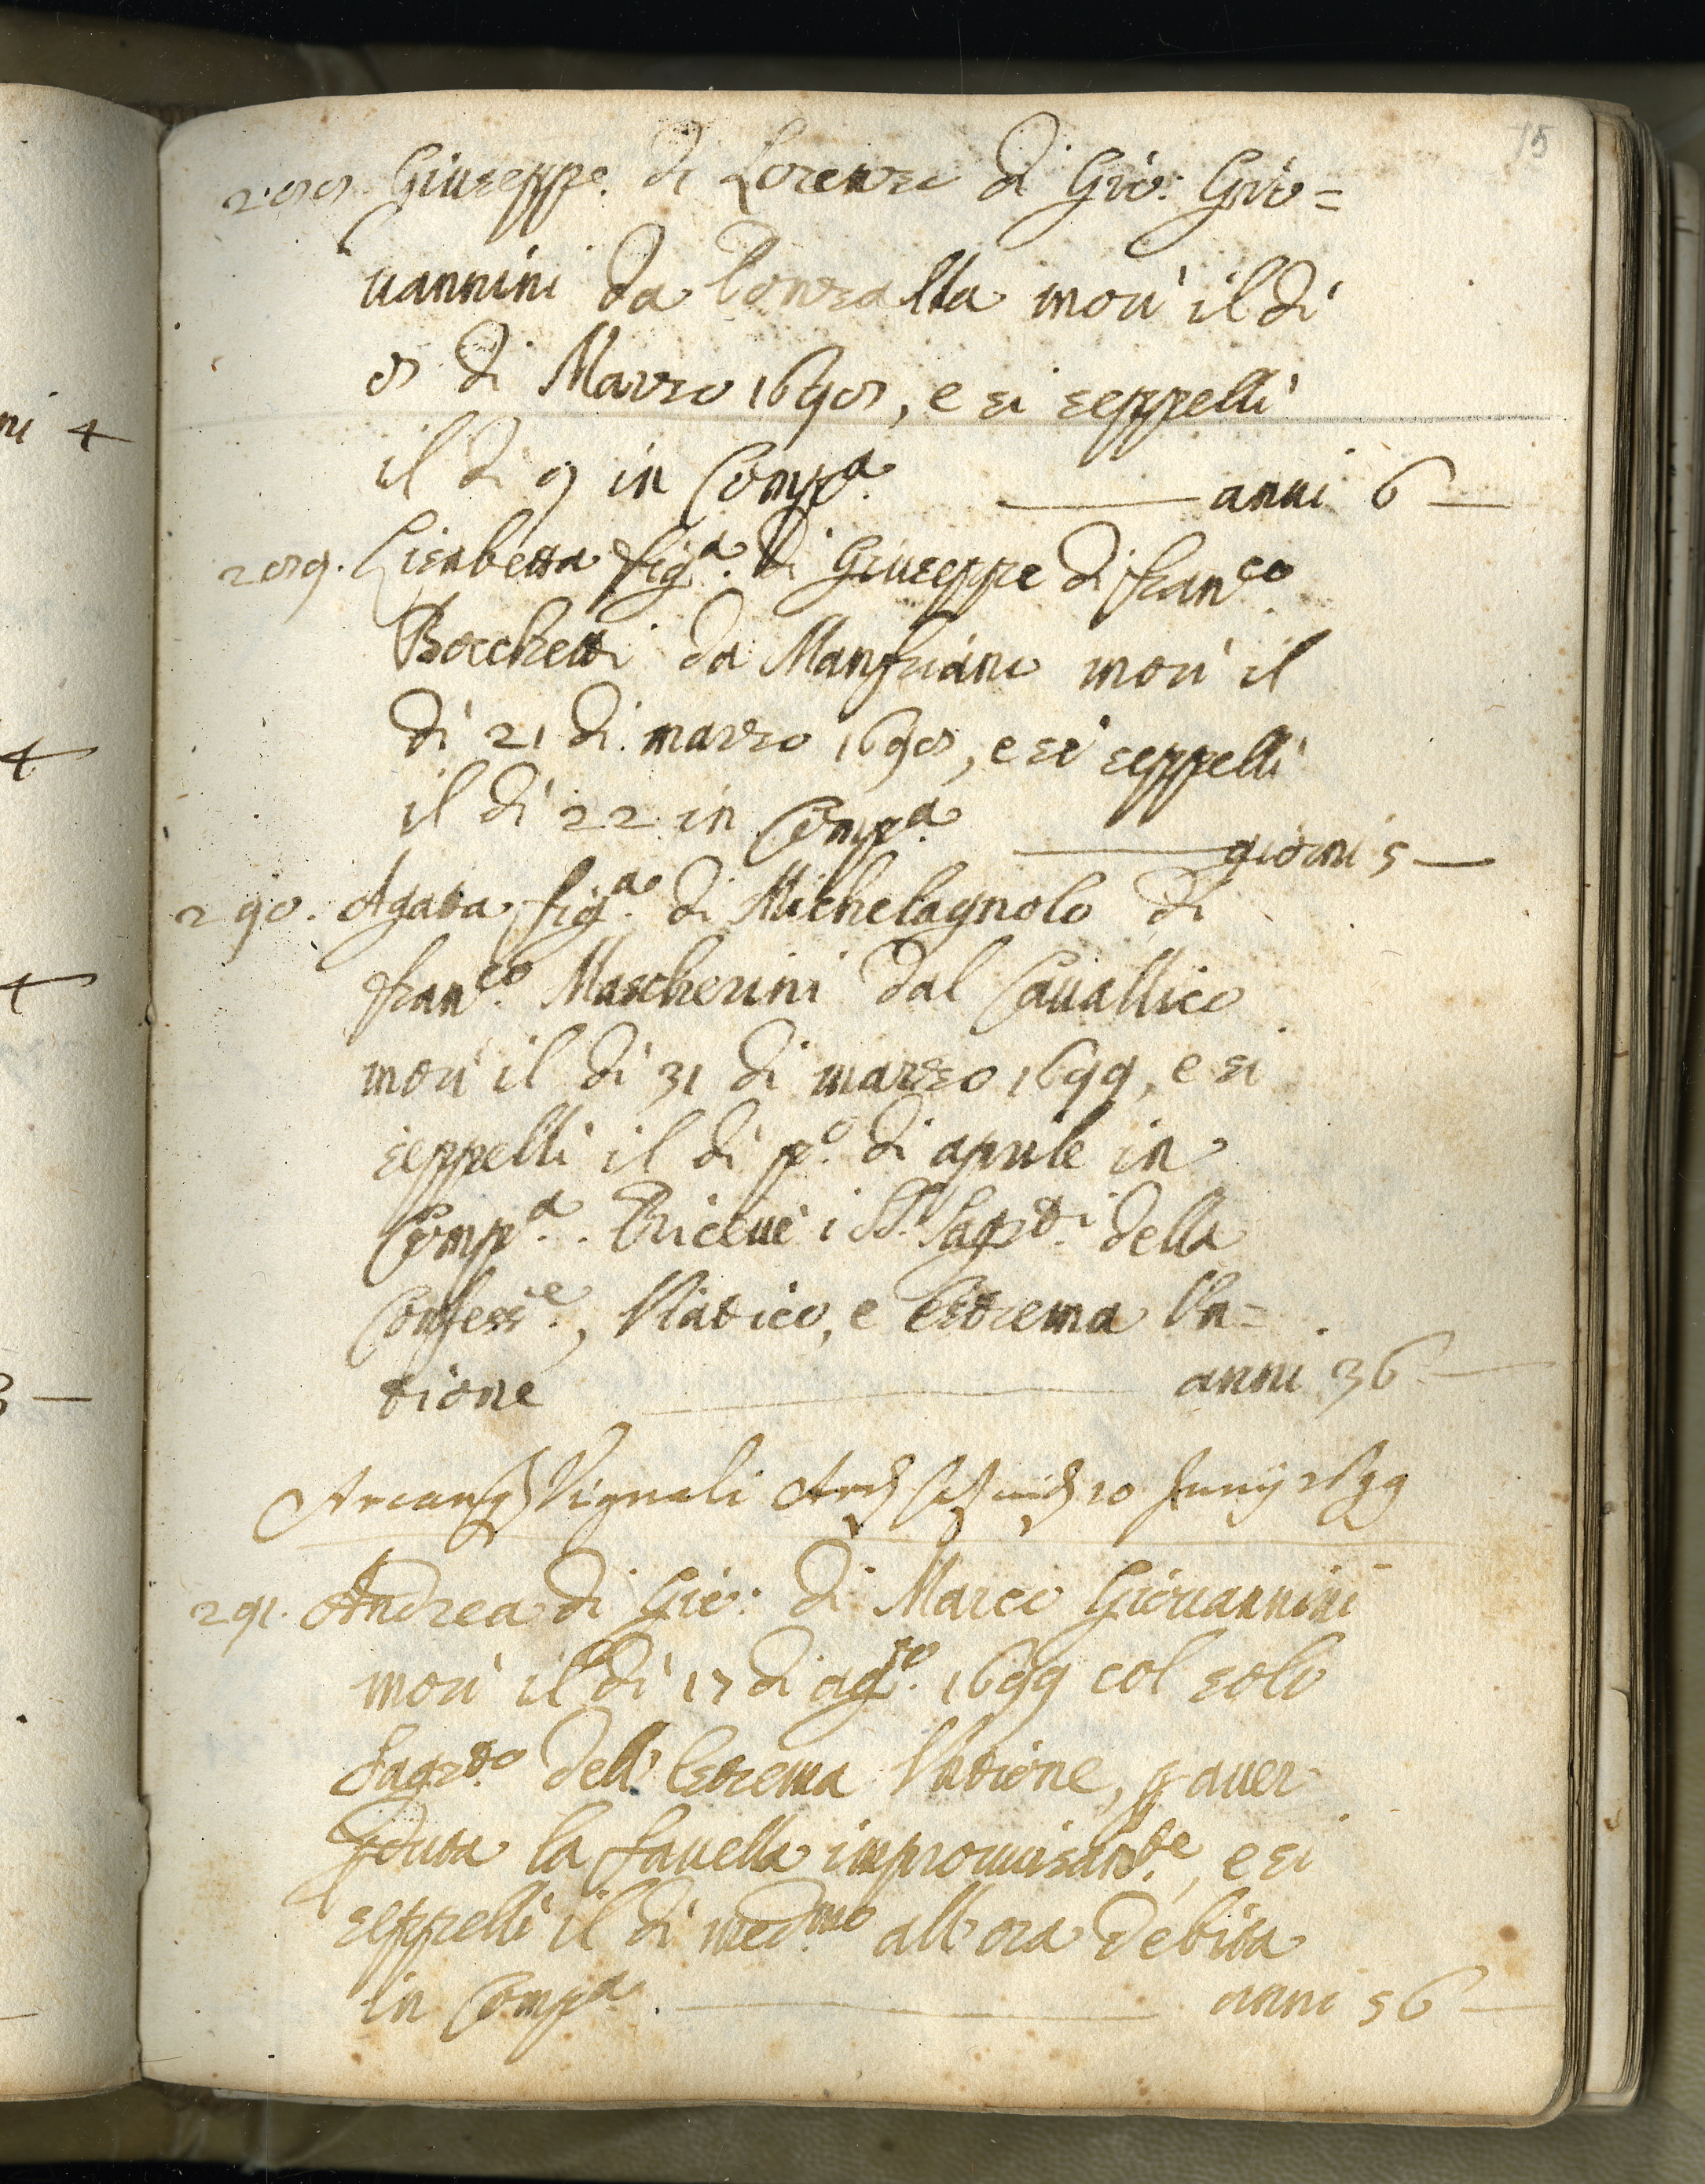 15
288. Giuseppe di Lorenzo di Gio: Gio=
uannini da Conzalta morì il dì
8 di Marzo 1698, e si seppellì
il dì 9 in Comp.a anni 6
289. Lisabetta fig.a di Giuseppe di Fran.co
Bocchetti da Manfriano morì il
dì 21 di marzo 1698, e si seppellì
il dì 22 in Comp.a giorni 5
290. Agata fig.a di Michelagnolo di
Fran.co Mascherini dal Cavallico
morì il dì 31 di marzo 1699, e si
seppellì il dì p.o di aprile in
Comp.a. Riceuè i SS. Sagr.ti della
Confess.e, Viatico, e Estrema Vn=
tione anni 36
Arcang Vignali 10 Junij 1699
291. Andrea di Gio: di Marco Giouannini
morì il dì 17 di ag.to 1699 col solo
Sagr.to dell' Estrema Vntione, p auer
pduta la fauella improuuisam.te, e si
seppellì il dì med.mo all' ora debita
in Comp.a anni 56
ni 4
4
4